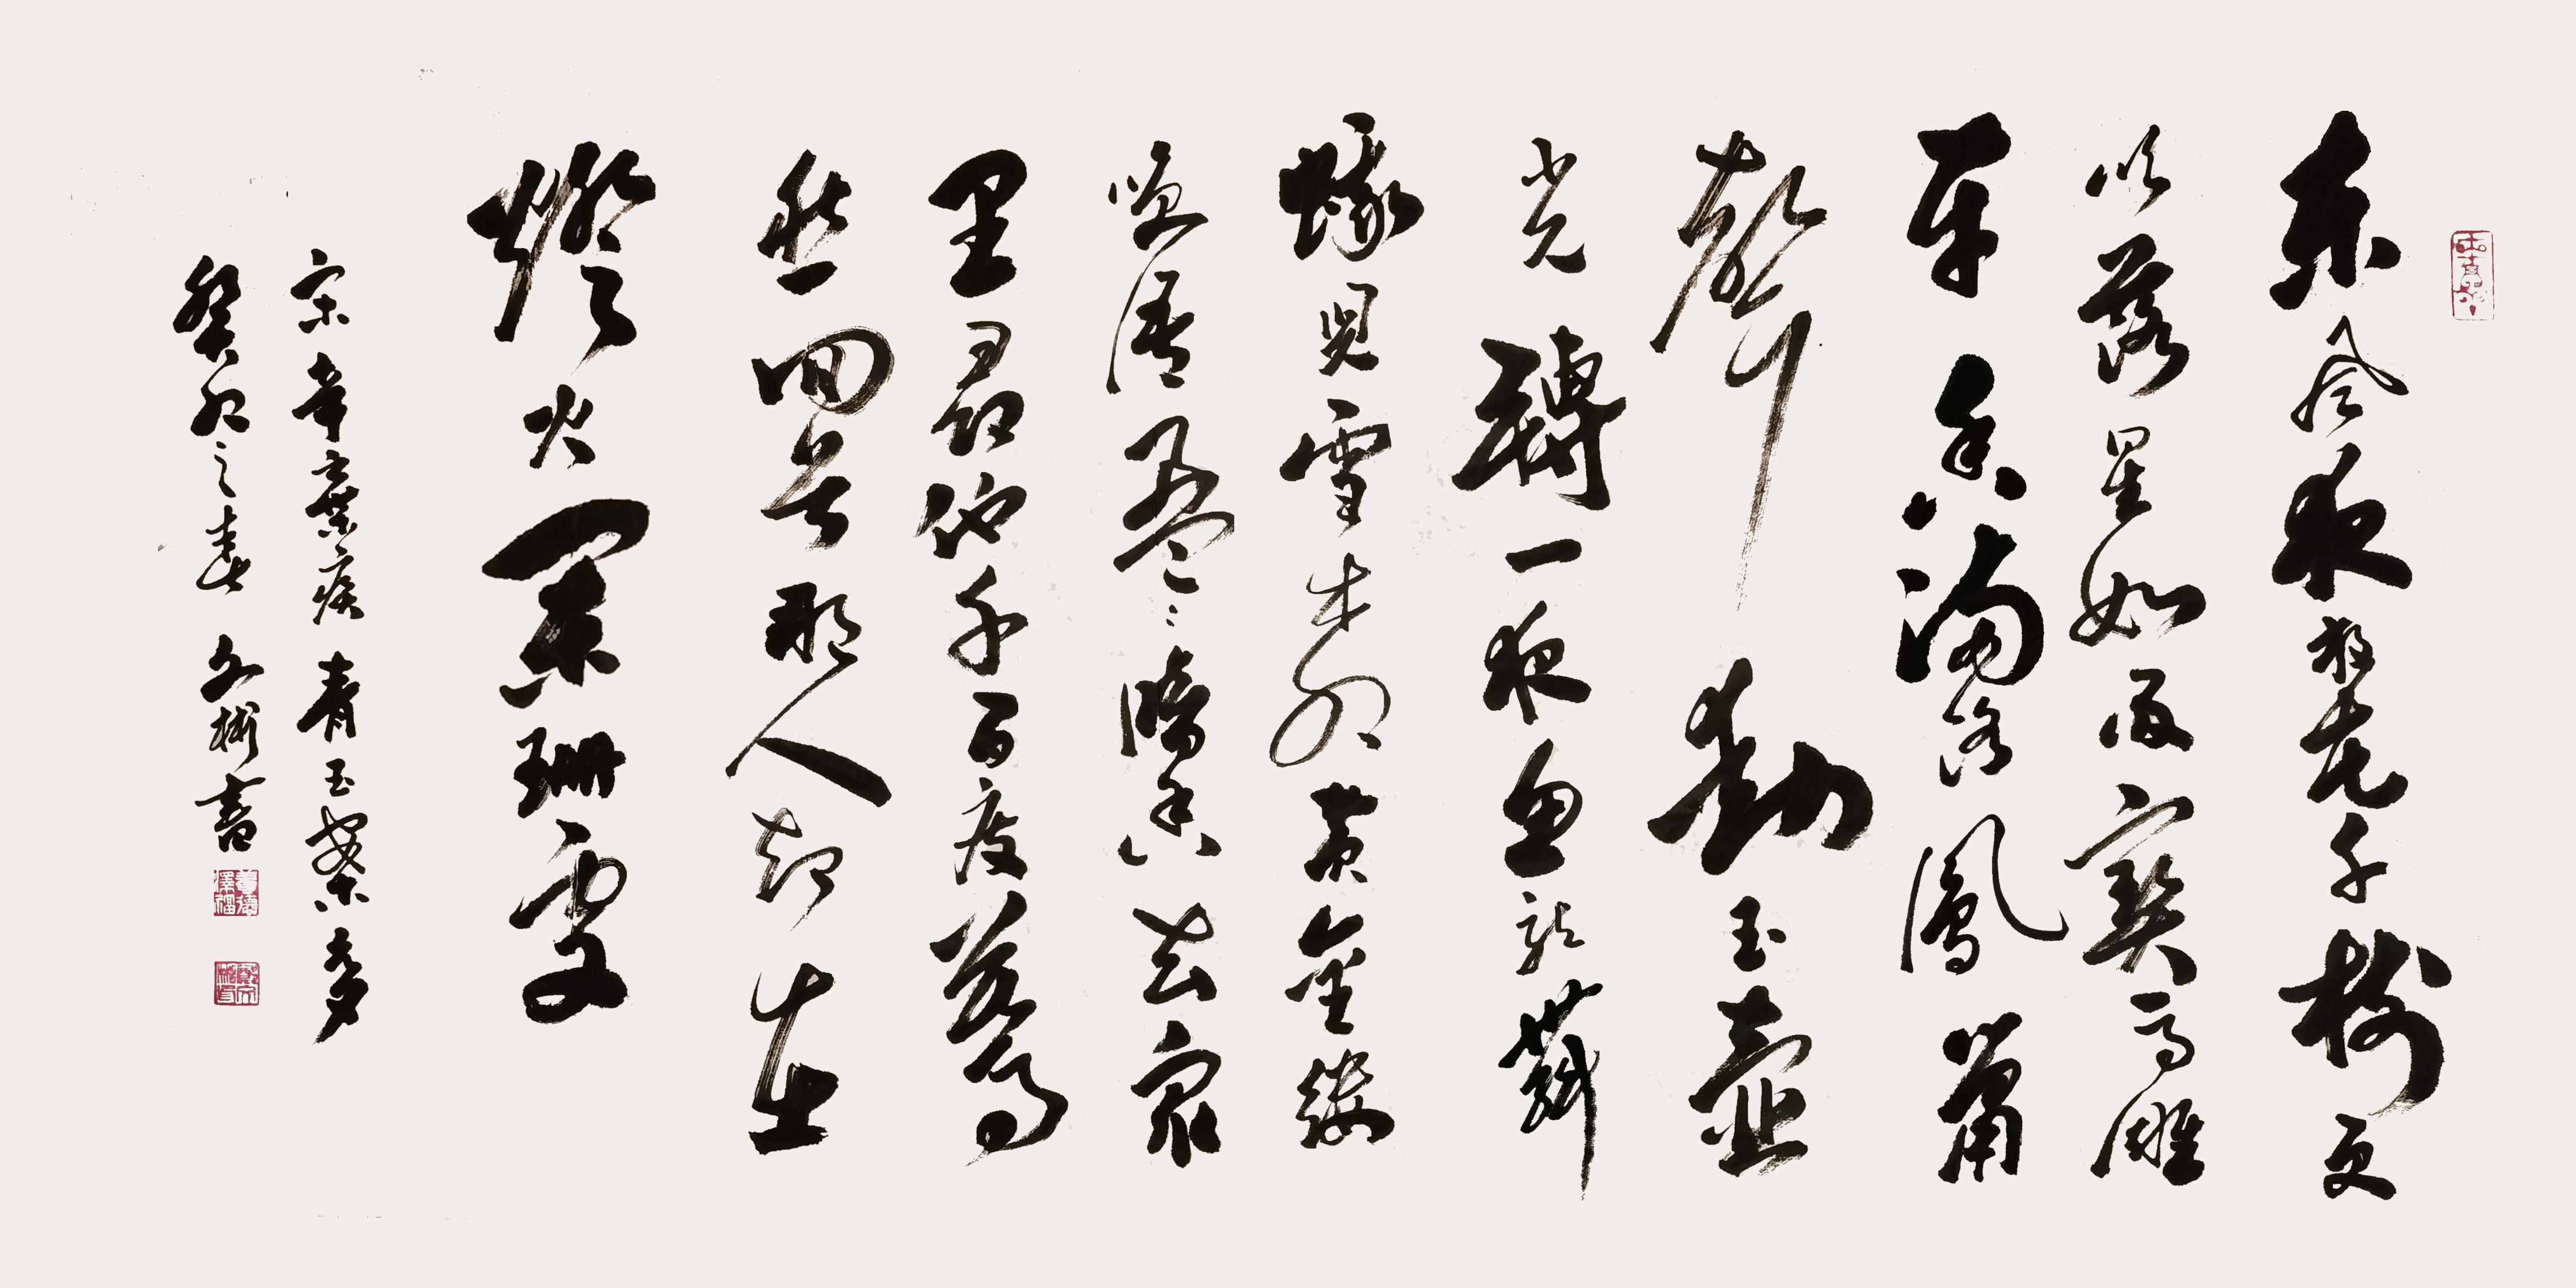 东风夜放花千树更
吹落星如雨宝马雕
车香满路凤箫
声动玉壶
光转一夜鱼龙舞
蛾儿雪柳黄金缕
笑语盈盈暗香去众
里寻他千百度蓦
然回首那人却在
灯火阑珊处
宋辛弃疾青玉案
癸卯之春文彬书